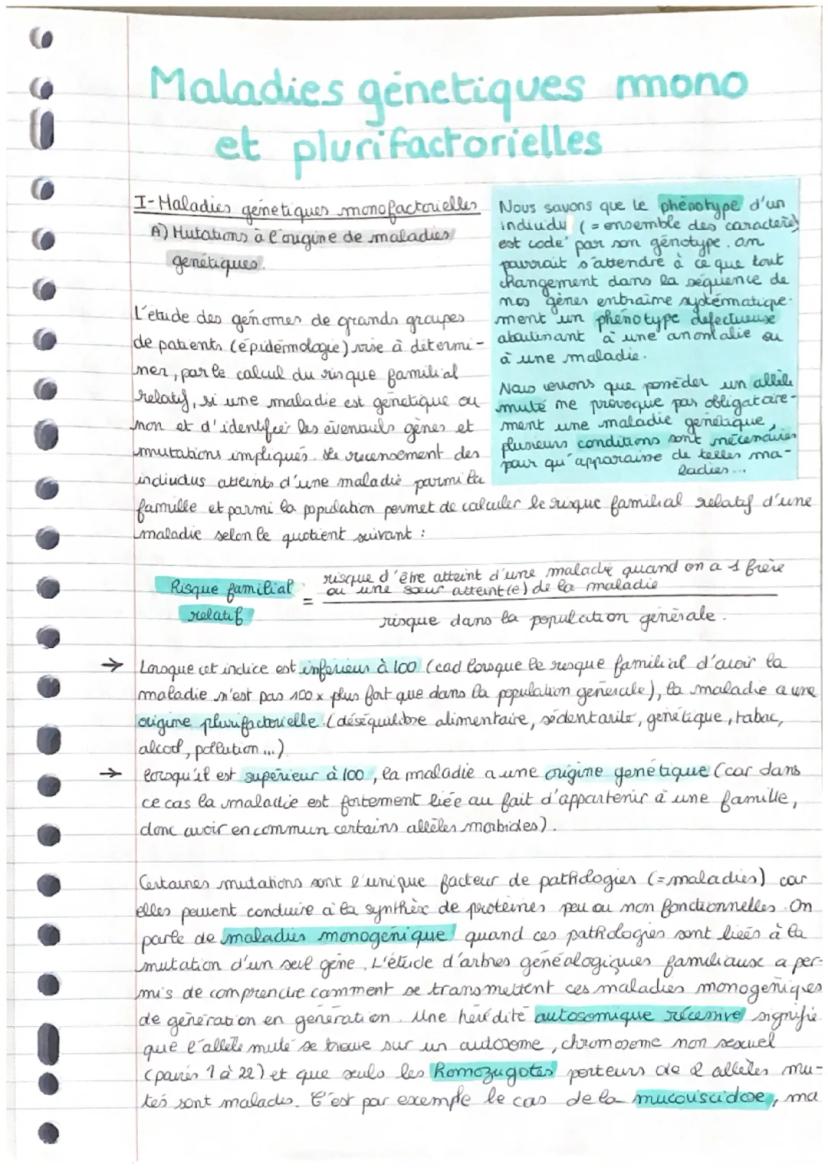 Maladies génetiques mono
et plurifactorielles
I- Maladies génetiques monofactorielles
A) Mutations à l'origine de maladies
génetiques.
Nous savons que le phénotype d'un
individu (= ensemble des caractères)
est codé par son génotype. on
pourrait s'attendre à ce que tout
changement dans la séquence de
nos gènes entraîne systématique-
ment un phénotype defectueuse
aboutinant à une anomalie ou
à une maladie.
Nous verrons que posséder un allèle
muté ne provoque pas obligatoire-
ment une maladie génétique,
plusieurs conditions sont nécessaires
pour qu'apparaisse de telles ma-
ladies...
L'étude des génomes de grands groupes
de patients (épidémologie) vise à détermi-
ner, par le calcul du risque familial
relatif, si une maladie est génétique ou
non et d'identifier les éventuels gènes et
mutations impliqués. Le recensement des
individus atteints d'une maladie parmi la
famille et parmi la population permet de calculer le risque familial relatif d'une
maladie selon le quotient suivant :
Risque familial relatif = risque d'être atteint d'une maladie quand on a 1 frère
ou une sœur atteint(e) de la maladie
risque dans la population générale.
→ Lorsque cet indice est inférieur à 100 (cad lorsque le risque familial d'avoir la
maladie n'est pas 100x plus fort que dans la population générale), la maladie a une
origine plurifactorielle (déséquilibre alimentaire, sédentarité, génétique, tabac,
alcool, pollution...)
→ lorsqu'il est supérieur à 100, la maladie a une origine genétique (car dans
ce cas la maladie est fortement liée au fait d'appartenir à une famille,
donc avoir en commun certains allèles morbides).
Certaines mutations sont l'unique facteur de pathologies (= maladies) car
elles peuvent conduire à la synthèse de protéines peu ou non fonctionnelles. On
parle de maladies monogénique quand ces pathologies sont liées à la
mutation d'un seul gène. L'étude d'arbres généalogiques familiaux a per-
mis de comprendre comment se transmettent ces maladies monogéniques
de génération en génération. Une hérédité autosomique récessive signifie
que l'allèle muté se trouve sur un autosome, chromosome non sexuel
(paires 1 à 22) et que seuls les homozygotes porteurs de 2 allèles mu-
tés sont malades. C'est par exemple le cas de la mucoviscidose, ma